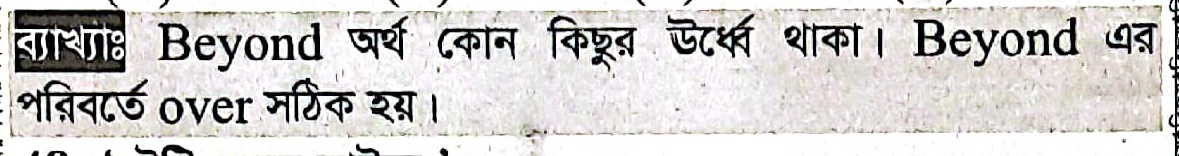 ব্যাখ্যাঃ Beyond অর্থ কোন কিছুর ঊর্ধ্বে থাকা। Beyond এর
পরিবর্তে over সঠিক হয়।